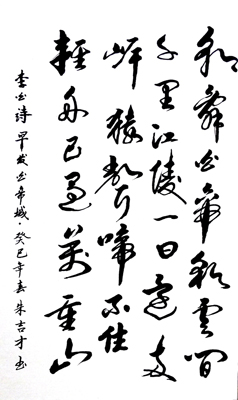 朝辞白帝彩雲间
千里江陵一日還两
岸猿聲啼不住
輕舟已過萬重山
李白诗早发白帝城·癸巳年春朱吉才书